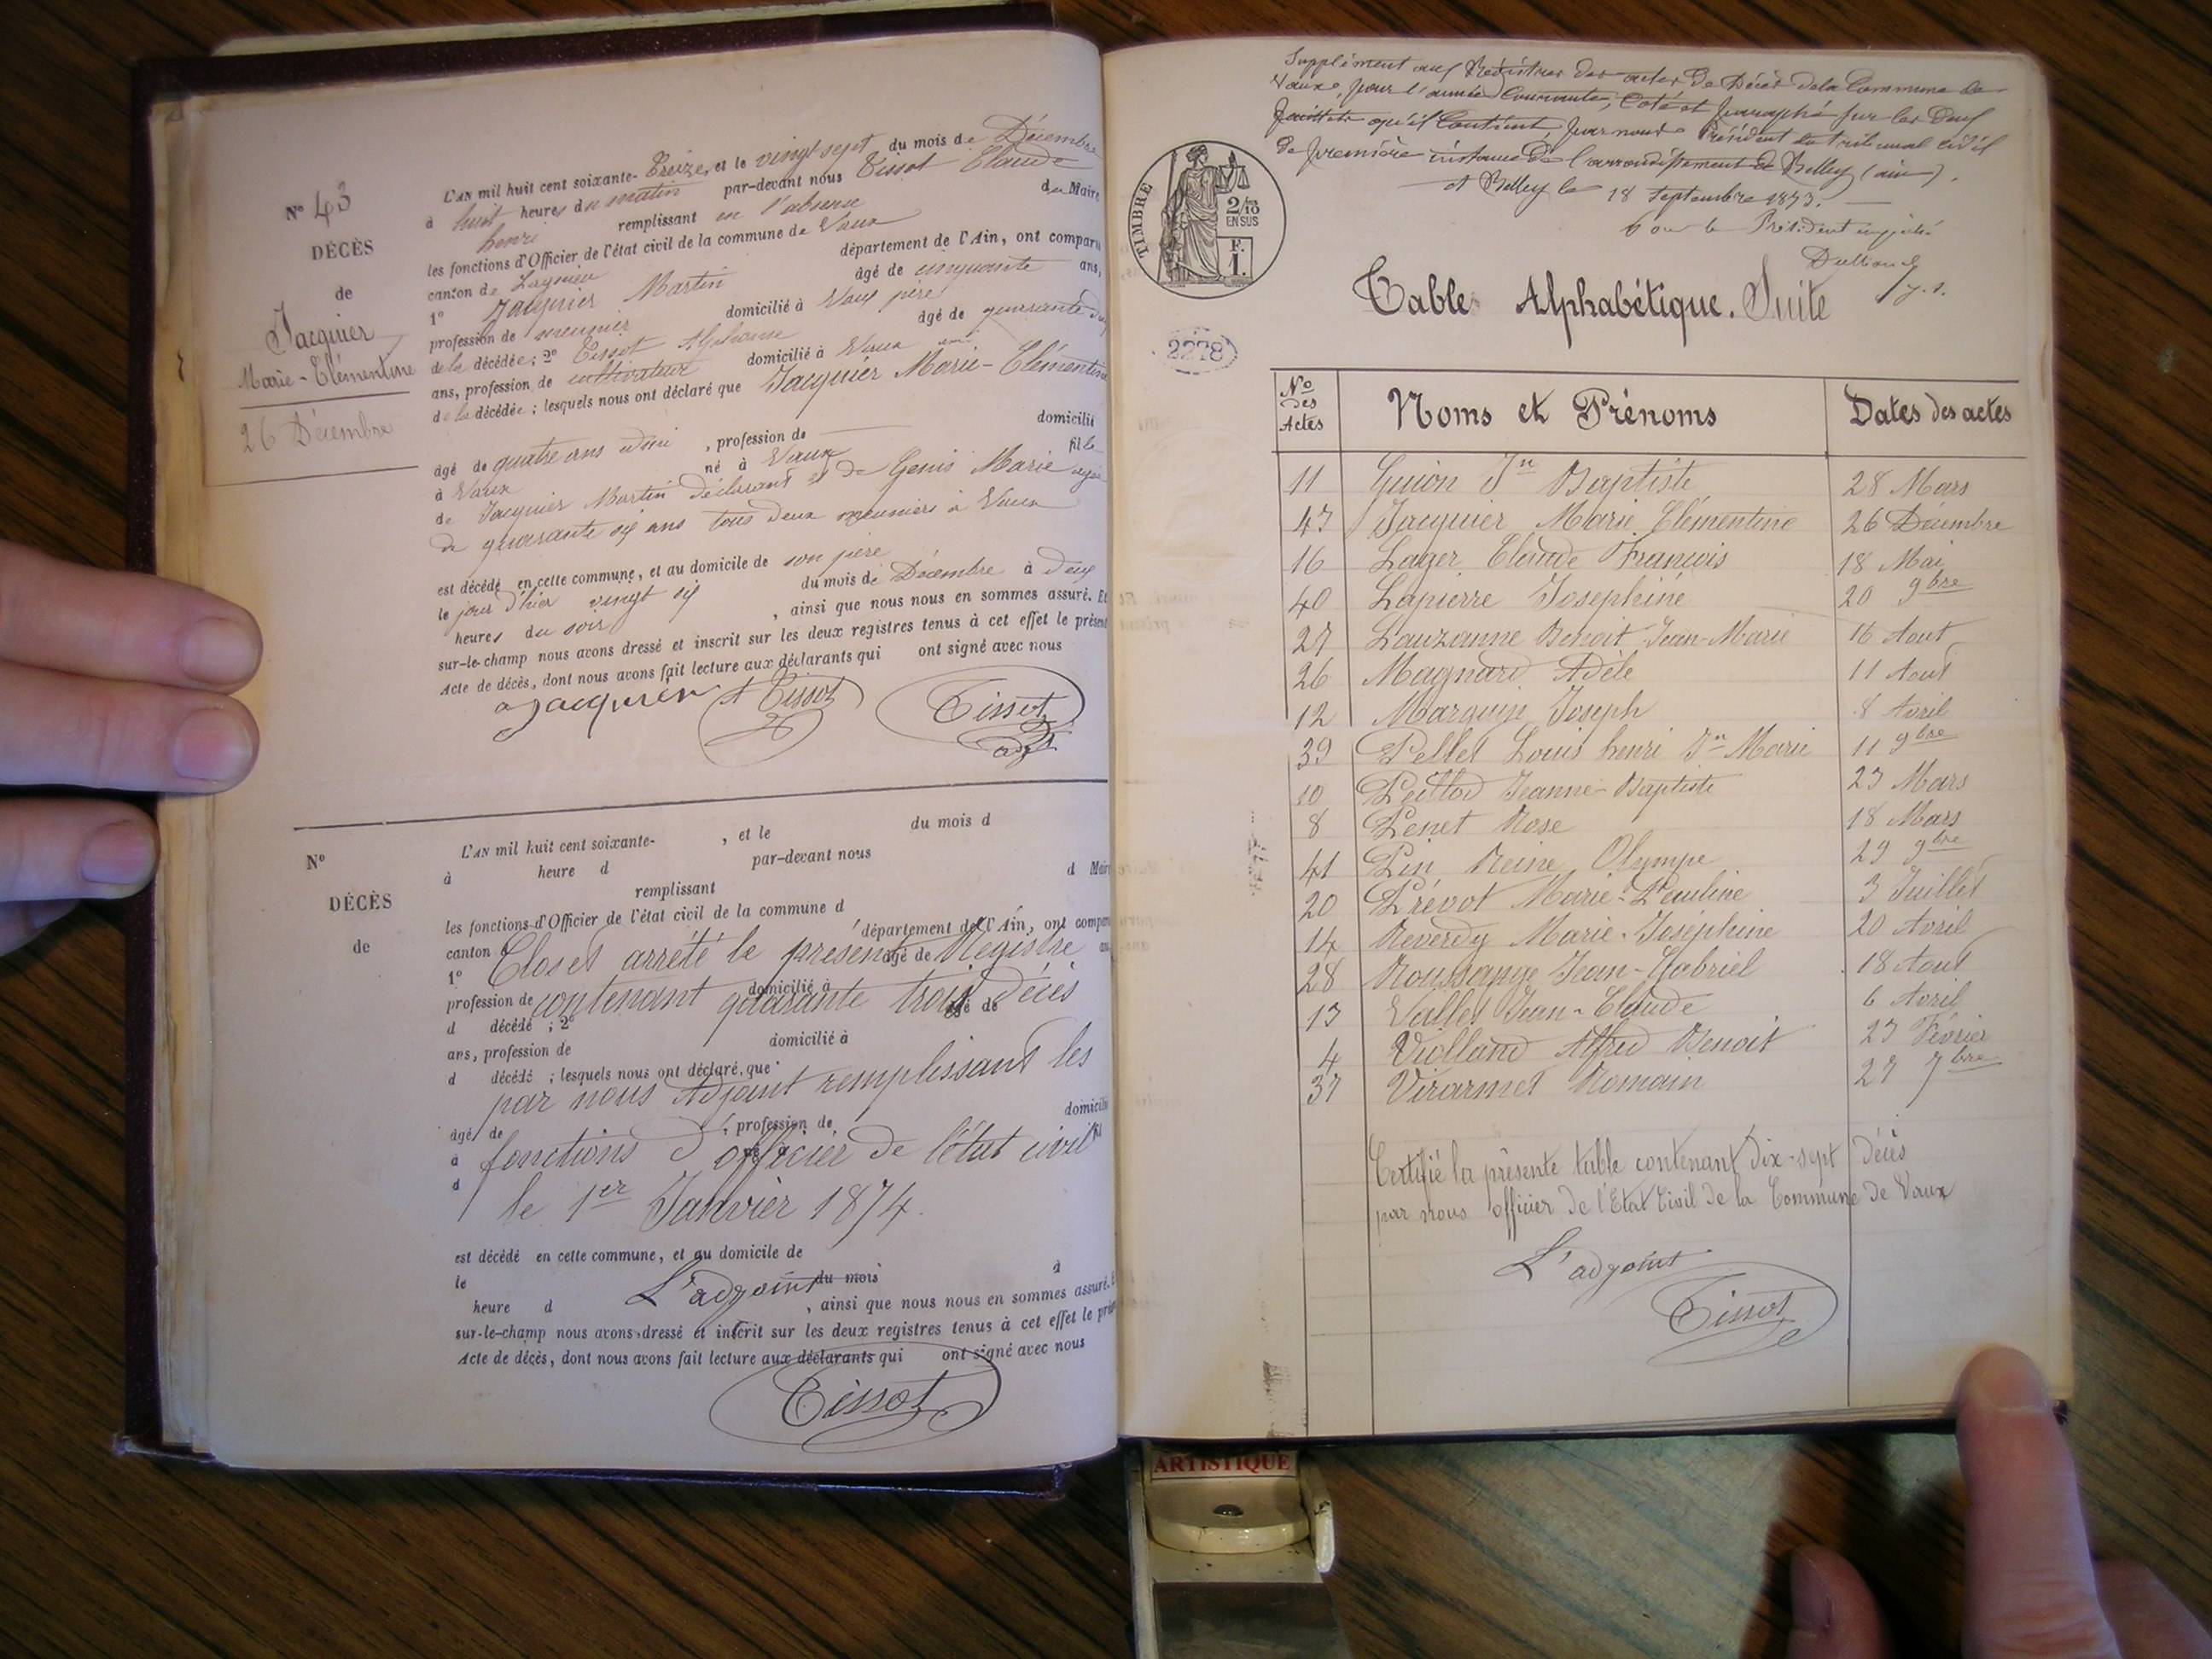 N° 43
DÉCÈS
de
Jacquier
Marie-Clémentine
26 Décembre
L'AN mil huit cent soixante-treize, et le vingt sept du mois de Décembre
à huit heures du matin par-devant nous Tissot Claude
henri remplissant en l'absence du Maire
les fonctions d'Officier de l'état civil de la commune de Vaux
canton de Lagnieu département de l'Ain, ont comparu
1° Jacquier Martin âgé de cinquante ans,
profession de meunier domicilié à Vaux père
de la décédée; 2° Tissot Alphonse âgé de quarante deux
ans, profession de cultivateur domicilié à Vaux ami
de la décédée; lesquels nous ont déclaré que Jacquier Marie-Clémentine
domicilié
âgé de quatre ans , profession de
à Vaux né à Vaux fille
de Jacquier Martin déclarant et de Genis Marie agée
de quarante six ans tous deux meuniers à Vaux
est décédé en cette commune, et au domicile de son père
le jour d'hier vingt six du mois de Décembre à deux
heures du soir , ainsi que nous nous en sommes assuré. Et
sur-le-champ nous avons dressé et inscrit sur les deux registres tenus à cet effet le présent
Acte de décès, dont nous avons fait lecture aux déclarants qui ont signé avec nous
Jacquier A Tissot Tissot
adj
N°
DÉCÈS
de
L'AN mil huit cent soixante- , et le du mois d
à heure d par-devant nous
remplissant d Mair
les fonctions d'Officier de l'état civil de la commune d
canton d département de l'Ain, ont compar
1° Clos et arrêté le présent âgé de Registre an
profession de contenant domicilié à quarante trois décès
d décédé ; 2° âgé de
ans, profession de domicilié à
d décédé ; lesquels nous ont déclaré que
par nous Adjoint remplissant les
âgé de , profession de domicilié
à fonctions d'officier de l'état civil
d le 1er Janvier 1874.
est décédé en cette commune, et au domicile de
le L'adjoint du mois à
heure d , ainsi que nous nous en sommes assuré. E
sur-le-champ nous avons dressé et inscrit sur les deux registres tenus à cet effet le prés
Acte de décès, dont nous avons fait lecture aux déclarants qui ont signé avec nous
Tissot
Supplément aux Registres des actes de Décès de la Commune de
Vaux, pour l'année Courante, Coté et paraphé sur les deux
feuillets qu'il Contient, par nous Président du tribunal civil
de première instance de l'arrondissement de Belley (ain).
A Belley le 18 Septembre 1873.
Pour le Président empêché
TIMBRE
2/10
EN SUS
F.
1.
2278
Table Alphabétique. Suite
Nos des Actes Noms et Prénoms Dates des actes
11 Guion Jn Baptiste 28 Mars
43 Jacquier Marie Clémentine 26 Décembre
16 Lager Claude François 18 Mai
40 Lapierre Josephine 20 9bre
27 Lauzanne Benoit Jean-Marie 16 Aout
26 Magnard Adèle 11 Aout
12 Marquin Joseph 8 Avril
39 Pellet Louis henri Jn Marie 11 9bre
10 Peillod Jeanne-Baptiste 23 Mars
8 Penet Rose 18 Mars
41 Pin Reine Olympe 29 9bre
20 Prévot Marie-Pauline 3 Juillet
14 Reverdy Marie-Joséphine 20 Avril
28 Roussange Jean-Gabriel 18 Aout
13 Vallet Jean-Claude 6 Avril
4 Violland Alfred Benoit 23 Février
37 Virarmet Romain 27 7bre
Certifié la présente table contenant dix-sept décès
par nous officier de l'Etat Civil de la Commune de Vaux
L'adjoint
Tissot
ARTISTIQUE